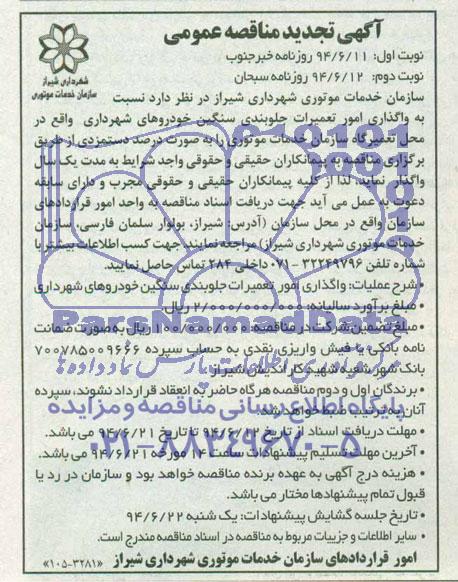 آگهی تجدید مناقصه عمومی
نوبت اول: ۹۴/۶/۱۱ روزنامه خبرجنوب
نوبت دوم: ۹۴/۶/۱۲ روزنامه سبحان
شهرداری شیراز
سازمان خدمات موتوری
سازمان خدمات موتوری شهرداری شیراز در نظر دارد نسبت
به واگذاری امور تعمیرات جلوبندی سنگین خودروهای شهرداری واقع در
محل تعمیرگاه سازمان خدمات موتوری را به صورت درصد دستمزدی از طریق
برگزاری مناقصه به پیمانکاران حقیقی و حقوقی واجد شرایط به مدت یک سال
واگذار نماید. لذا از کلیه پیمانکاران حقیقی و حقوقی مجرب و دارای سابقه
دعوت به عمل می آید جهت دریافت اسناد مناقصه به واحد امور قراردادهای
سازمان واقع در محل سازمان (آدرس: شیراز، بولوار سلمان فارسی، سازمان
خدمات موتوری شهرداری شیراز) مراجعه نمایند. جهت کسب اطلاعات بیشتر با
شماره تلفن ۳۲۲۴۹۷۹۶ - ۰۷۱ داخلی ۲۸۴ تماس حاصل نمایید.
• شرح عملیات: واگذاری امور تعمیرات جلوبندی سنگین خودروهای شهرداری
• مبلغ برآورد سالیانه: ۲/۰۰۰/۰۰۰/۰۰۰ ریال
• مبلغ تضمین شرکت در مناقصه: ۱۰۰/۰۰۰/۰۰۰ ریال به صورت ضمانت
نامه بانکی یا فیش واریزی نقدی به حساب سپرده ۷۰۰۷۸۵۰۰۹۶۶۶
بانک شهر شعبه شهید کاراندیش شیراز
• برندگان اول و دوم مناقصه هرگاه حاضر به انعقاد قرارداد نشوند، سپرده
آنان به ترتیب ضبط خواهد شد.
• مهلت دریافت اسناد از تاریخ ۹۴/۶/۱۲ تا تاریخ ۹۴/۶/۲۱ می باشد.
• آخرین مهلت تسلیم پیشنهادات ساعت ۱۴ مورخه ۹۴/۶/۲۱ می باشد.
• هزینه درج آگهی به عهده برنده مناقصه خواهد بود و سازمان در رد یا
قبول تمام پیشنهادها مختار می باشد.
• تاریخ جلسه گشایش پیشنهادات: یک شنبه ۹۴/۶/۲۲
• سایر اطلاعات و جزییات مربوط به مناقصه در اسناد مناقصه مندرج است.
امور قراردادهای سازمان خدمات موتوری شهرداری شیراز
«۱۰۵-۳۲۸۱»
ParsNamadData
پایگاه اطلاع رسانی مناقصه و مزایده
۰۲۱-۸۸۳۴۹۶۷۰-۵